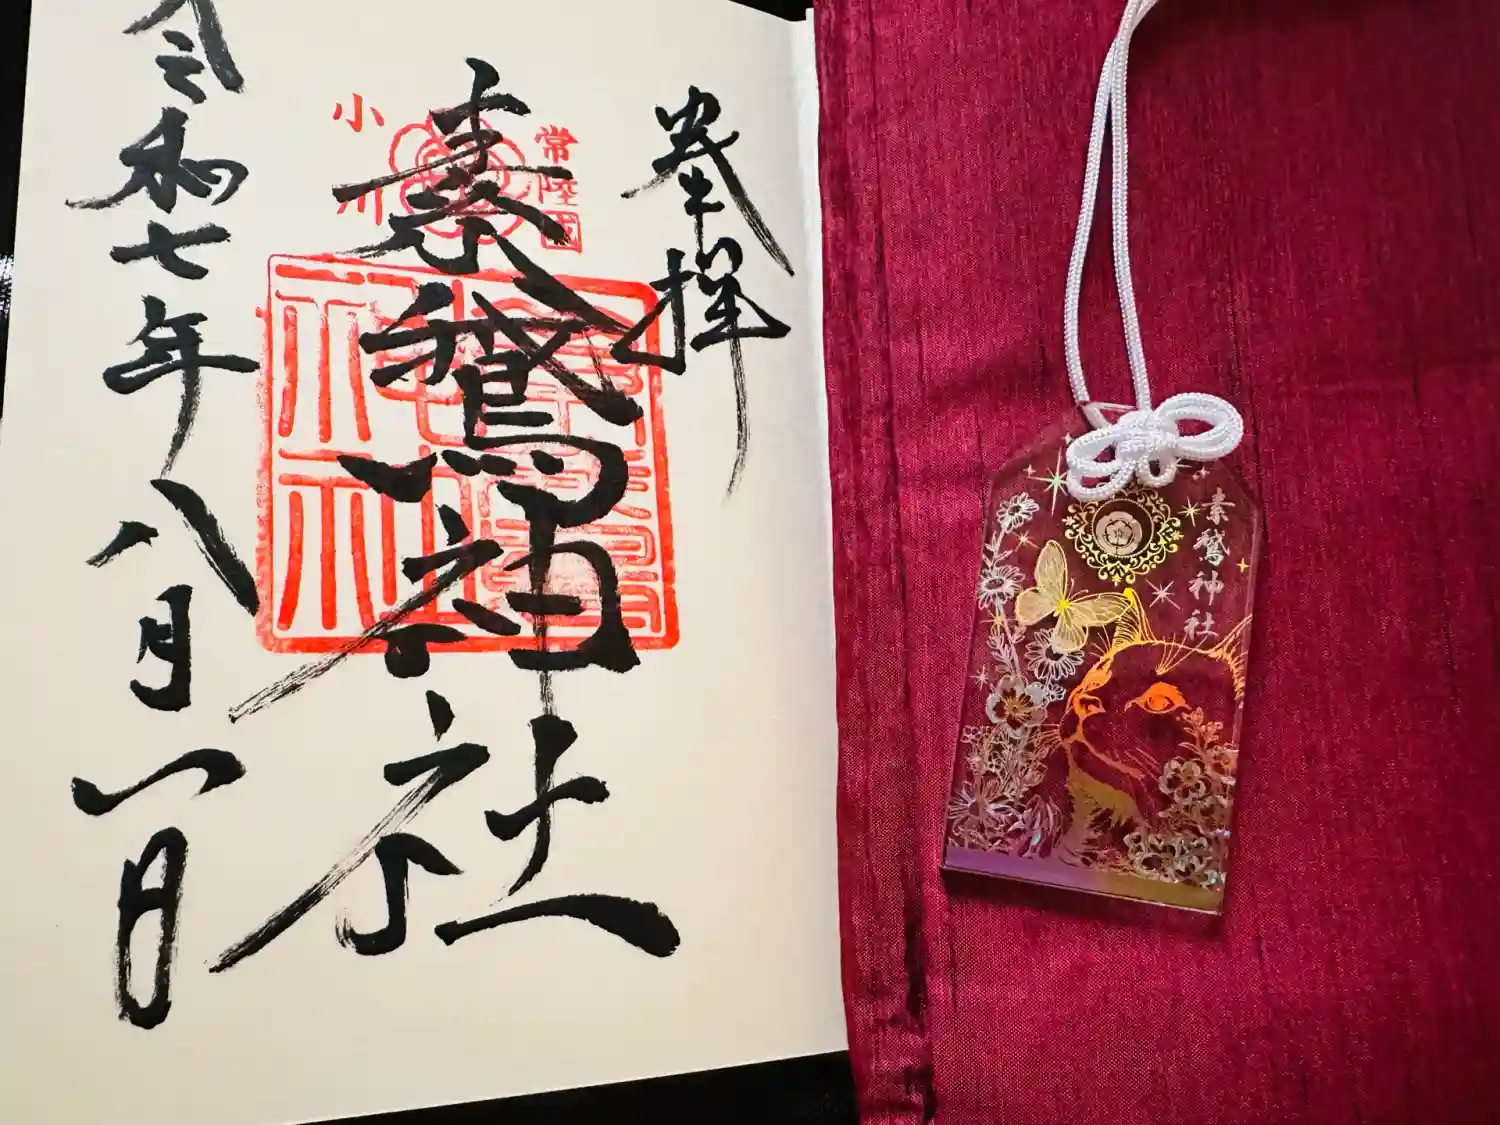 奉拝
常陸国
小川
素鵞神社
令和七年八月一日
素鵞神社